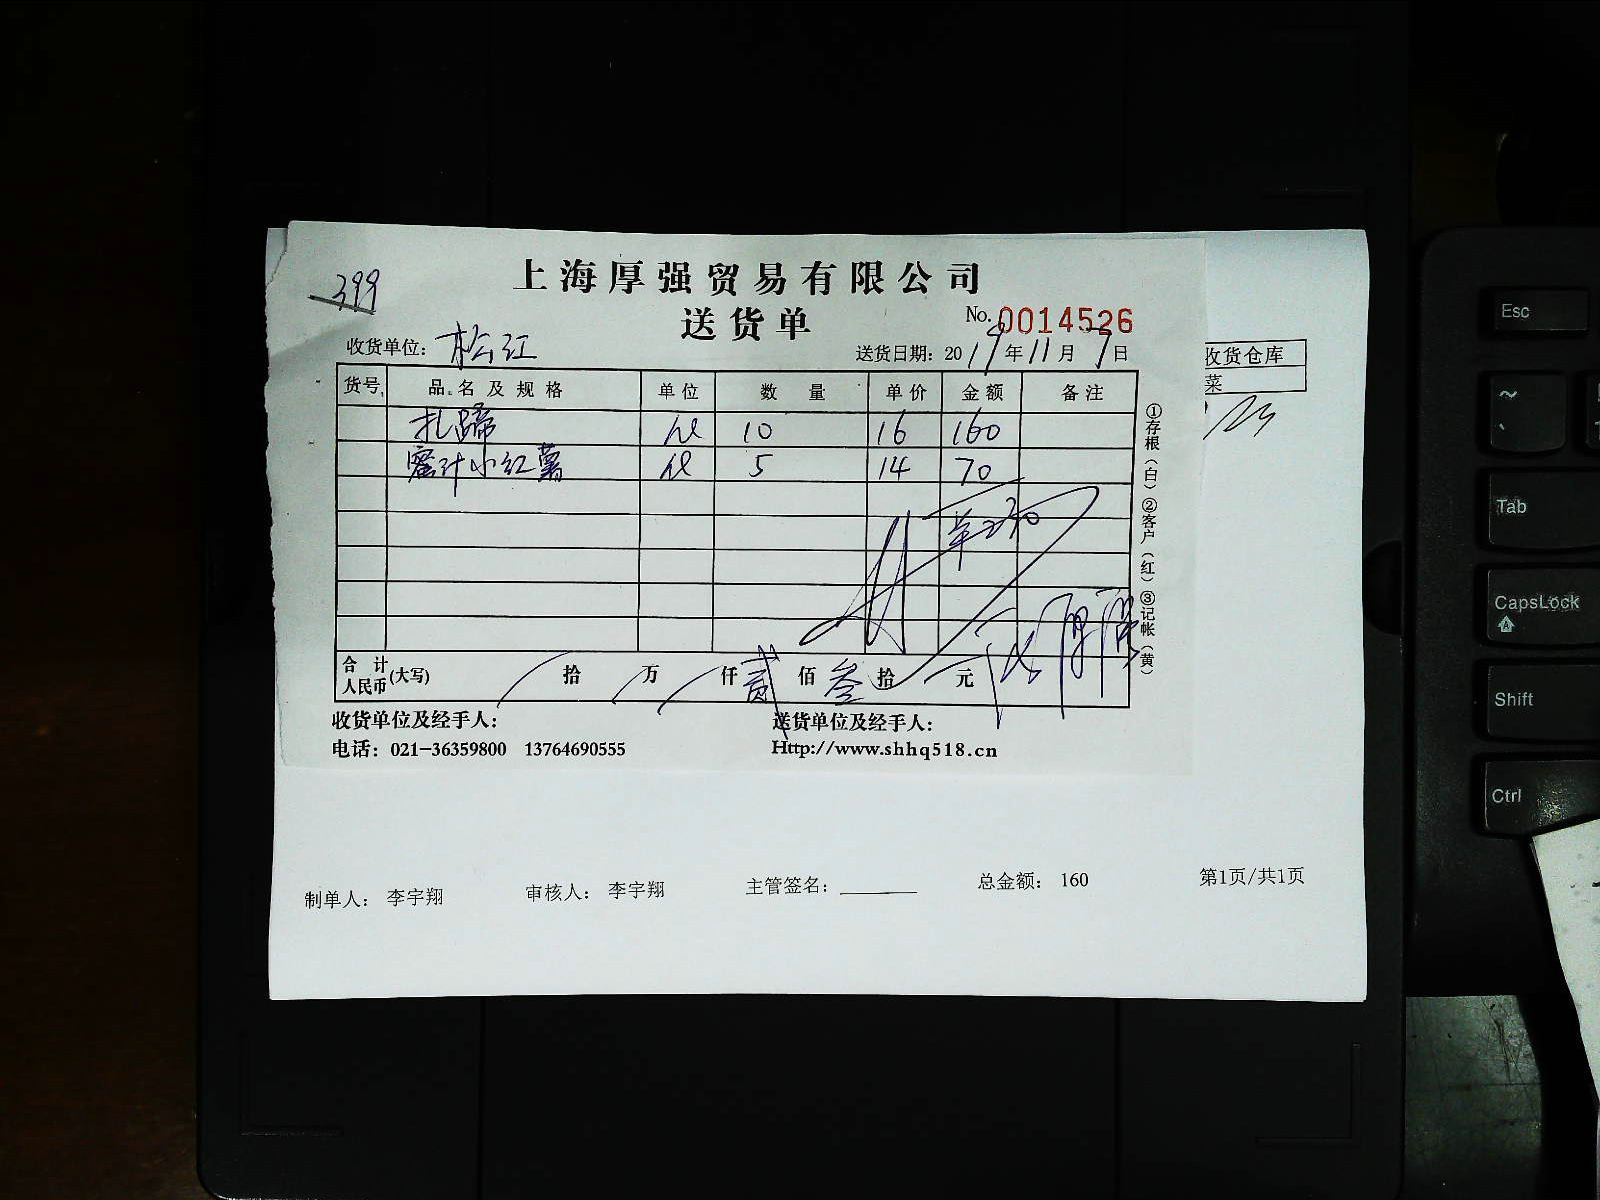 399
上海厚强贸易有限公司
送货单
No. 0014526
收货单位: 松江
送货日期: 2019年11月7日
货号 品名及规格 单位 数量 单价 金额 备注
扎蹄 10 16 160
蜜汁小红薯 5 14 70
合计人民币(大写) 拾 万 仟 贰 佰 叁 拾 元
①存根(白)②客户(红)③记帐(黄)
收货单位及经手人: 送货单位及经手人:
电话: 021-36359800 13764690555 Http://www.shhq518.cn
收货仓库
菜
制单人: 李宇翔 审核人: 李宇翔 主管签名: 总金额: 160 第1页/共1页
Esc
~
Tab
CapsLock
A
Shift
Ctrl